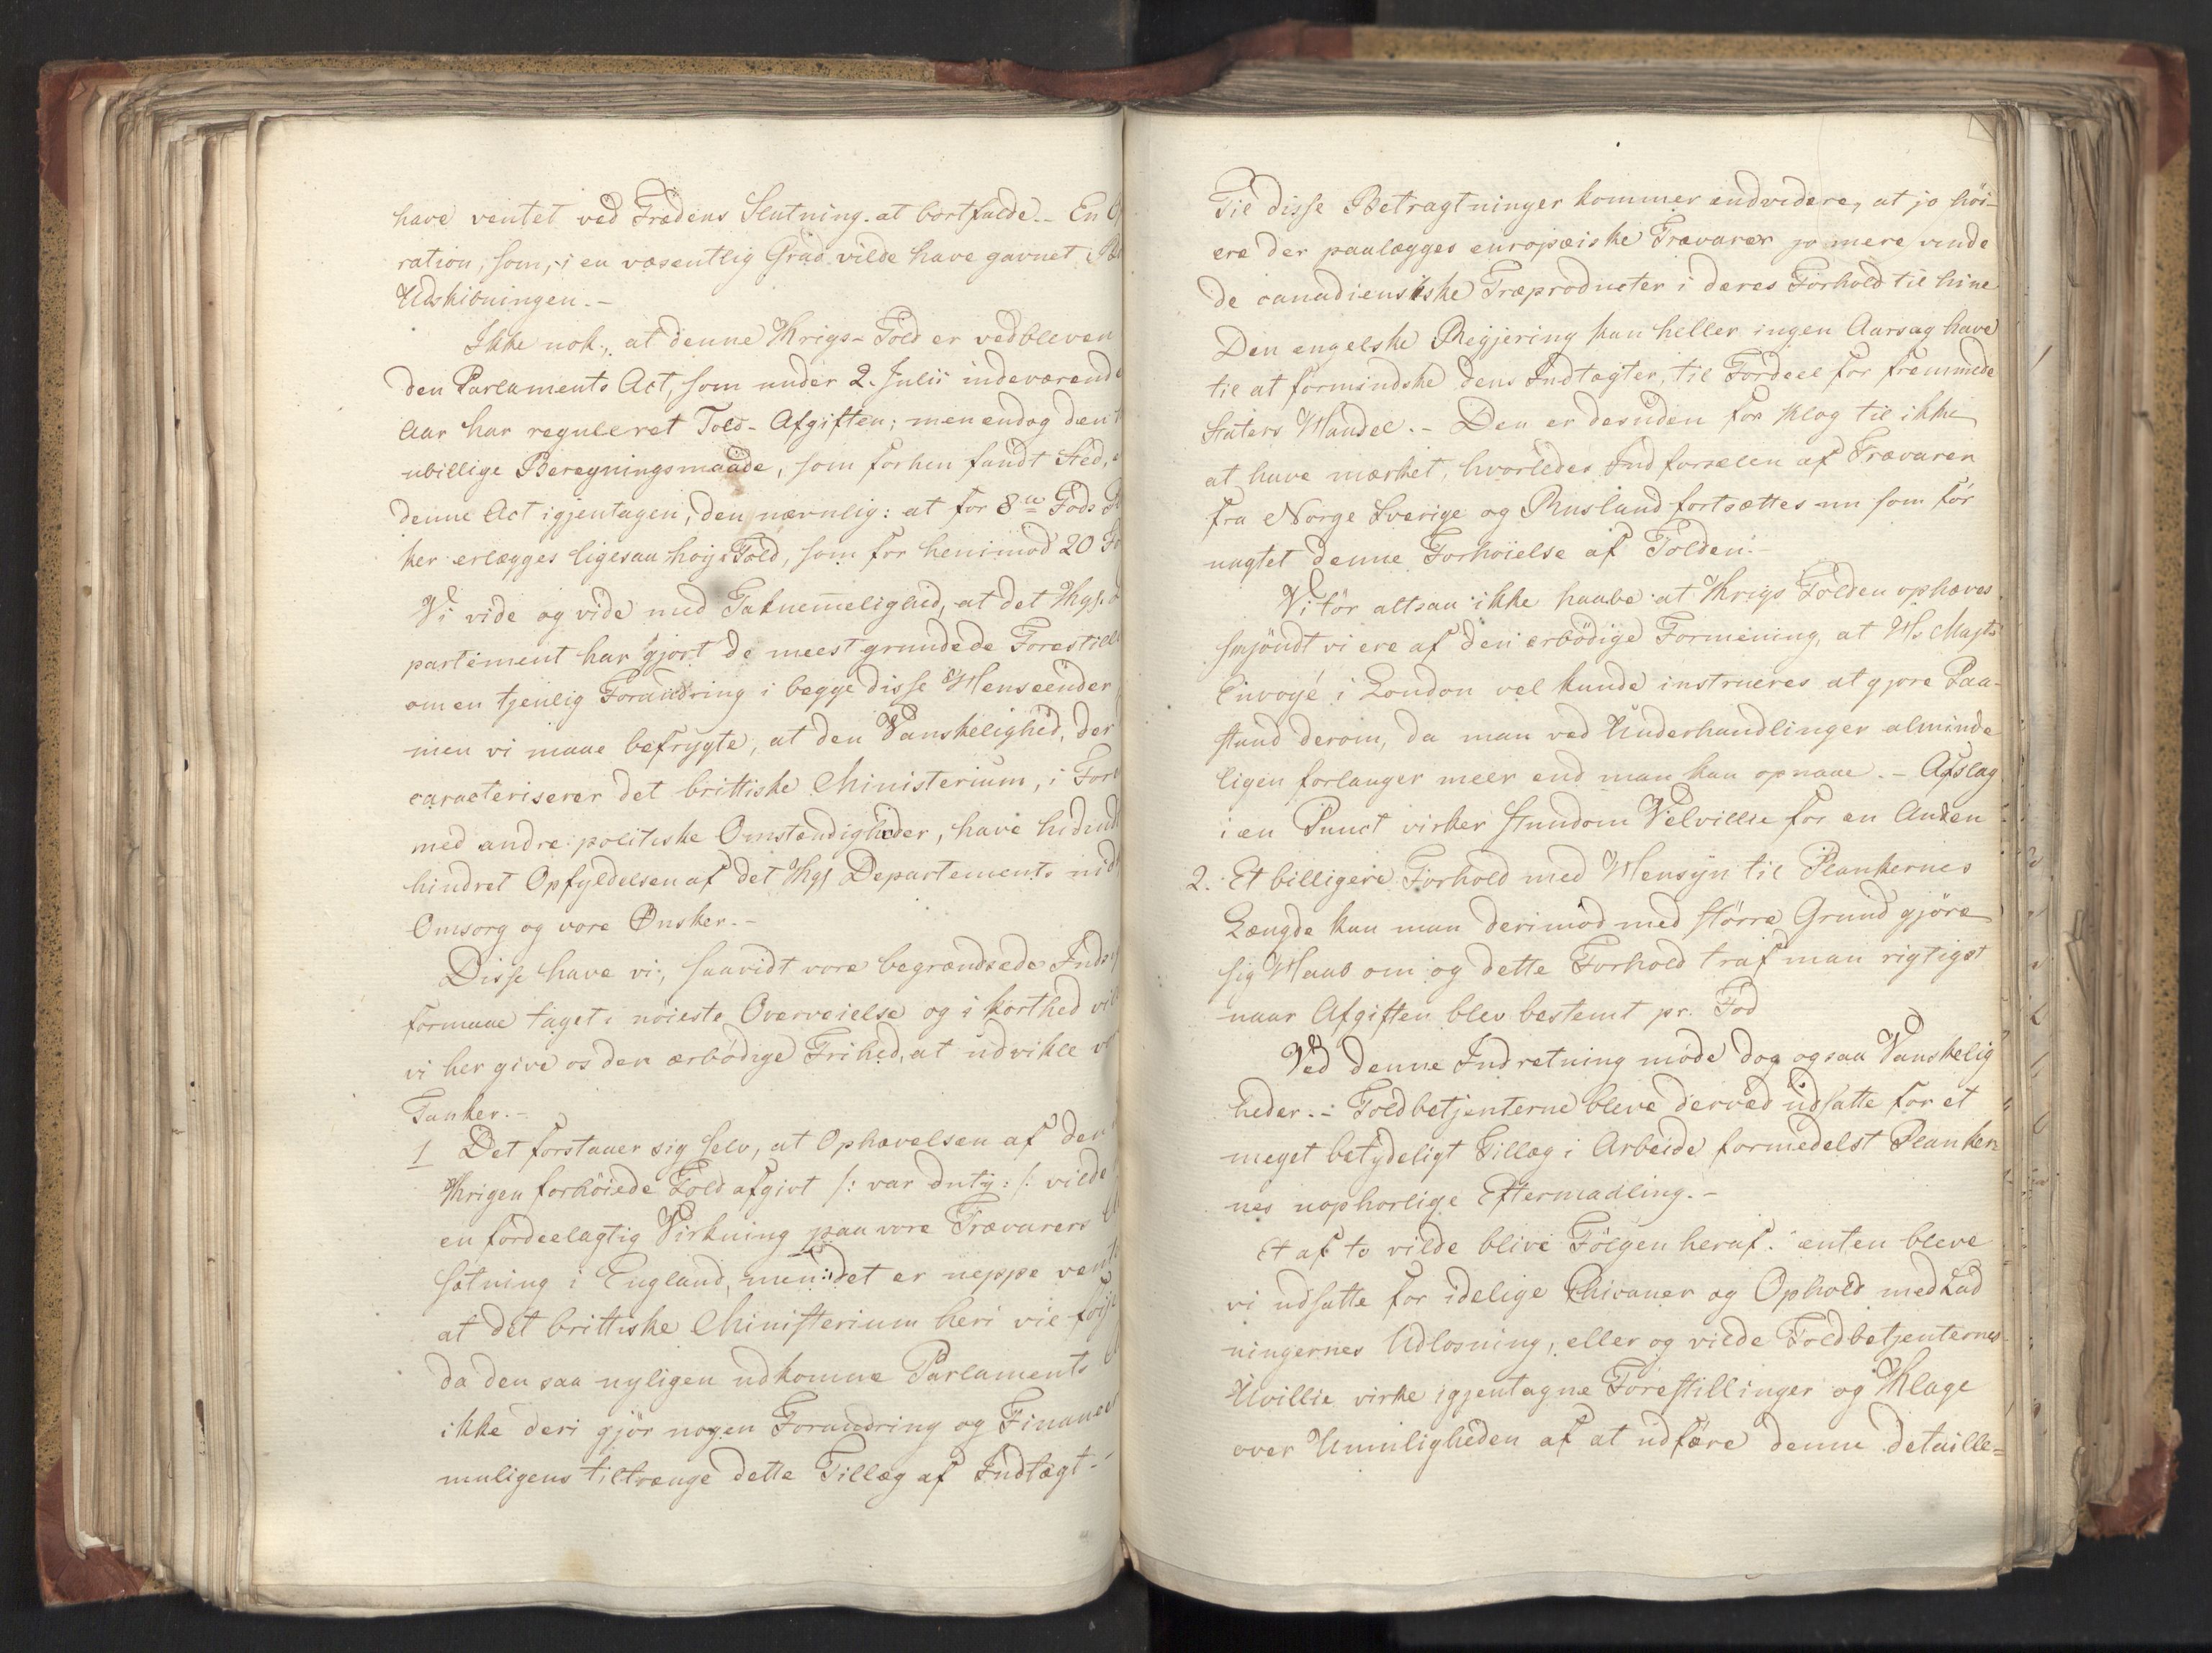 have ventet ved Fredens Slutning at bortfalde.- En
ration, som, i en væsentlig Grad vilde have gavnet
Udskibningen.-
Ikke nok, at denne Krigs-Told er vedbleven
den Parlaments Act, som under 2. Julii indeværende
Aar har reguleret Told-Afgiften; men endog den
ubillige Beregningsmaade, som forhen fandt Sted,
denne Act igjentagen, den nævnlig: at for 8 Fods
ker erlægges ligesaa høi Told, som for henimod 20
Vi vide og vide med Taknemmelighed, at det Kgl.
partement har gjort de meest grundede Forestill
om en tjenlig Forandring i begge disse Henseender
men vi maae befrygte, at den Vanskelighed, der
caracteriserer det brittiske Ministerium, i For
med andre politiske Omstændigheder, have hidind
hindret Opfyldelsen af det Kgl Departements nid
Omsorg og vore Ønsker.-
Disse have vi, saavidt vore begrændsede Inds
formaae taget i nøieste Overveielse og i korthed vil
vi her give os den ærbödige Frihed, at udvikle vo
Tanker.-
1 Det forstaaer sig selv, at Ophævelsen af den
Krigen forhöiede Told afgivt /: var duty :/ vilde
en fordeelagtig Virkning paa vore Trævarers
sætning i England, men det er neppe vent
at det brittiske Ministerium heri vil föije
da den saa nyligen udkomne Parlaments
ikke deri gjör nogen Forandring og Finance
muligens tiltrænge dette Tillæg af Indtægt.-
Til disse Betragtninger kommer endvidere, at jo höi-
ere der paalægges europæiske Trævarer jo mere vinde
de canadiensiske Træproducter i deres Forhold til hine
Den engelske Regjering kan heller ingen Aarsag have
til at formindske dens Indtægter, til Fordeel for fremmede
Staters Handel.- Den er desuden for klog til ikke
at have mærket, hvorledes Indforselen af Trævarer
fra Norge Sverige og Rusland fortsættes nu som för
uagtet denne Forhöielse af Tolden.-
Vi tör altsaa ikke haabe at Krigs Tolden ophæves
skjöndt vi ere af den ærbödige Formening, at Hs Majts
Envoyé i London vel kunde instrueres at gjöre Paa-
stand derom, da man ved Underhandlinger alminde
ligen forlanger meer end man kan opnaae.- Afslag
i en Punct virker stundom Velvillie for en Anden
2. Et billigere Forhold med Hensyn til Plankernes
Længde kan man derimod med större Grund gjöre
sig Haab om og dette Forhold traf man rigtigst
naar Afgiften blev bestemt pr. Fod
Ved denne Indretning möde dog ogsaa Vanskelig
heder.- Toldbetjenterne bleve derved udsatte for et
meget betydeligt Tillæg i Arbeide formedelst Planker
nes uophorlige Eftermaaling.-
Et af to vilde blive Fölgen heraf: enten bleve
vi udsatte for idelige Chicaner og Ophold med Lad
ningernes Udlosning, eller og vilde Toldbetjenternes
Uvillie virke igjentagne Forestillinger og Klage
over Umuligheden af at udföre denne detaille-